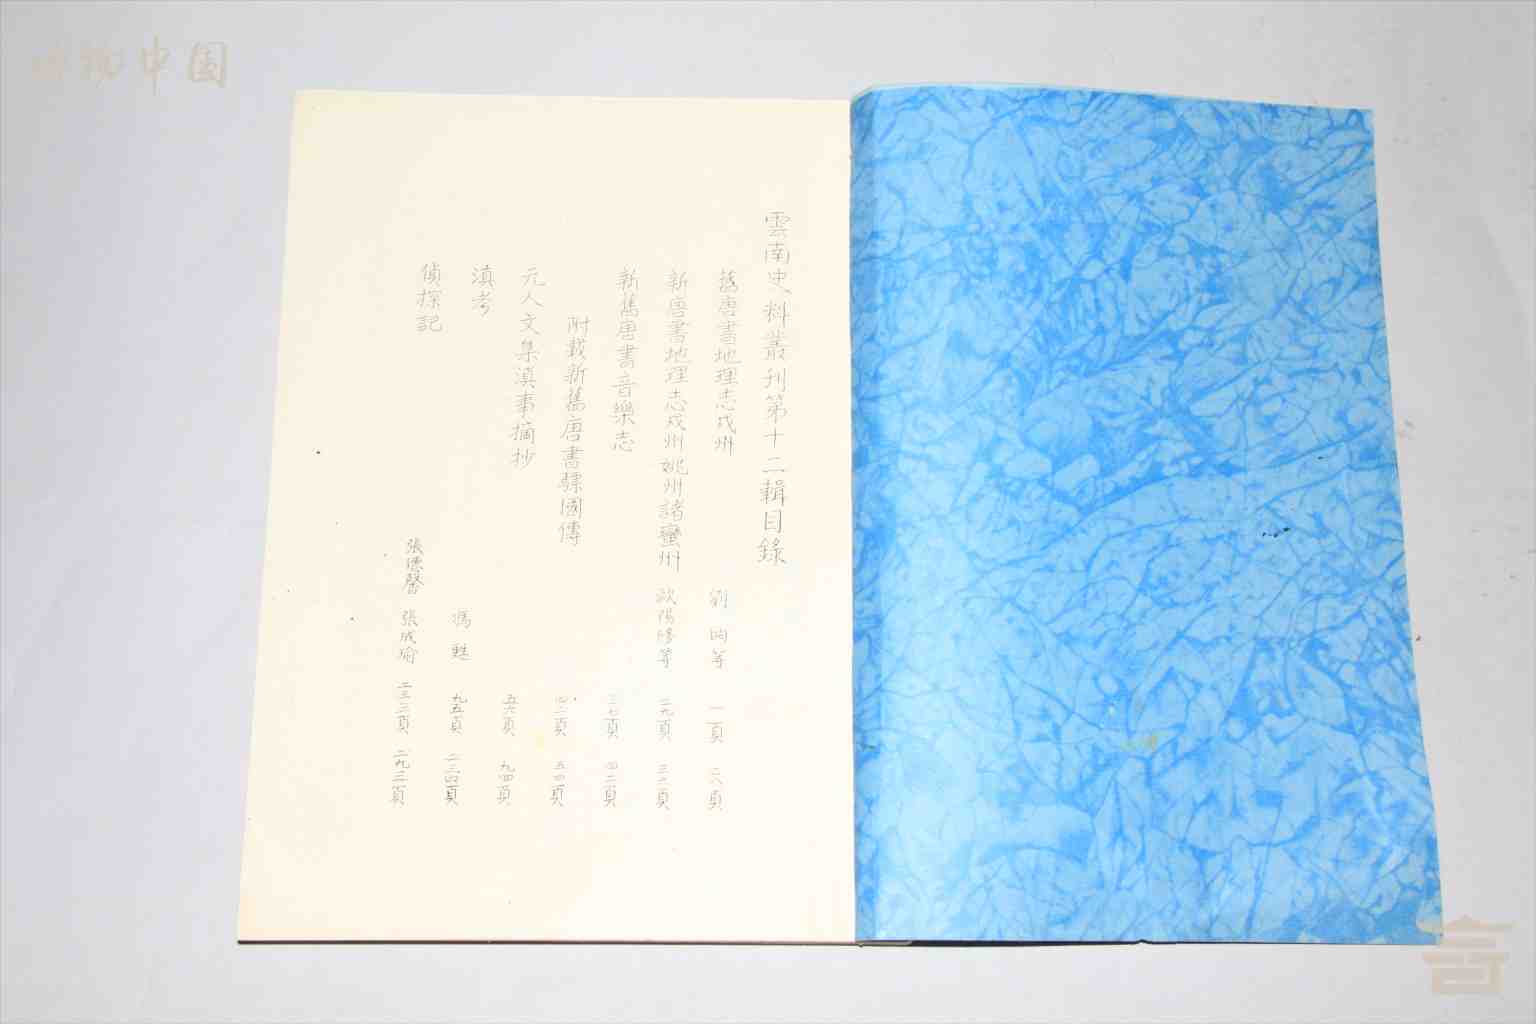 雲南史料叢刊第十二輯目錄
舊唐書地理志戎州 劉昫等 一頁 二八頁
新唐書地理志戎州姚州諸蠻州 歐陽修等 二九頁 三六頁
新舊唐書音樂志 三七頁 四二頁
附載新舊唐書驃國傳 四二頁 五四頁
元人文集滇事摘抄 五六頁 九四頁
滇考 馮甦 九五頁 二三四頁
偵探記 張德馨 張成瑜 二三六頁 二九二頁
中国